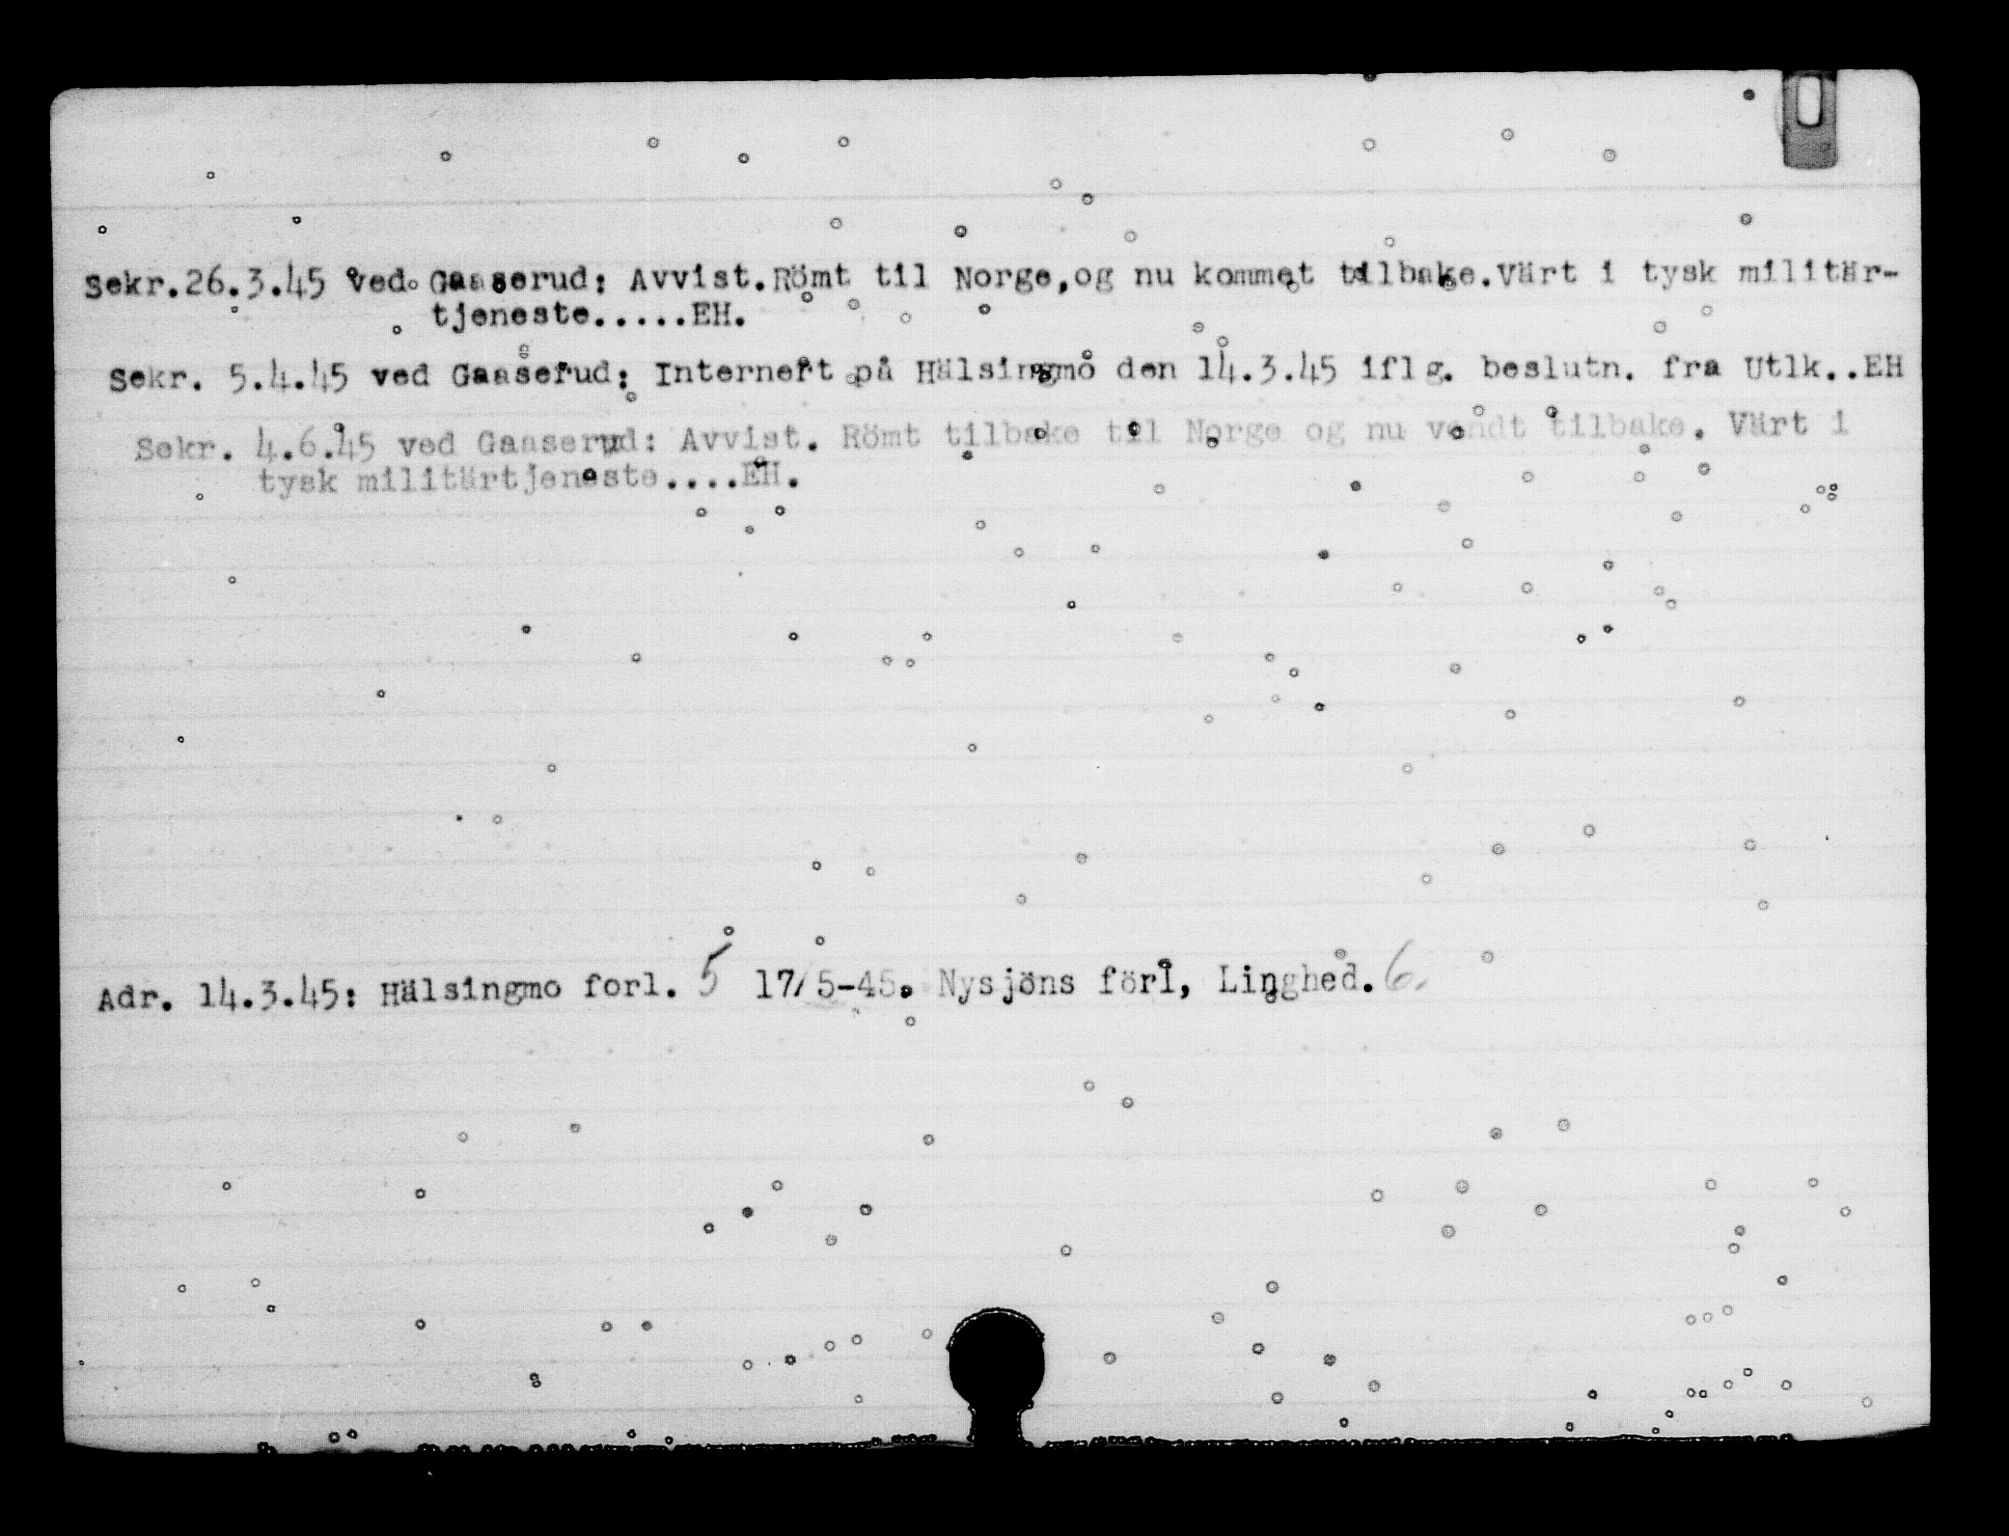 Sekr.26.3.45 ved Gaaserud: Avvist.Römt til Norge,og nu kommet tilbake.Värt i tysk militär-
tjeneste.....EH.
Sekr. 5.4.45 ved Gaaserud: Internert på Hälsingmo den 14.3.45 iflg. beslutn. fra Utlk..EH
Sekr. 4.6.45 ved Gaaserud: Avvist. Römt tilbake til Norge og nu vendt tilbake. Värt i
tysk militärtjeneste....EH.
Adr. 14.3.45: Hälsingmo forl. 5 17/5-45. Nysjöns förl, Linghed. 6.